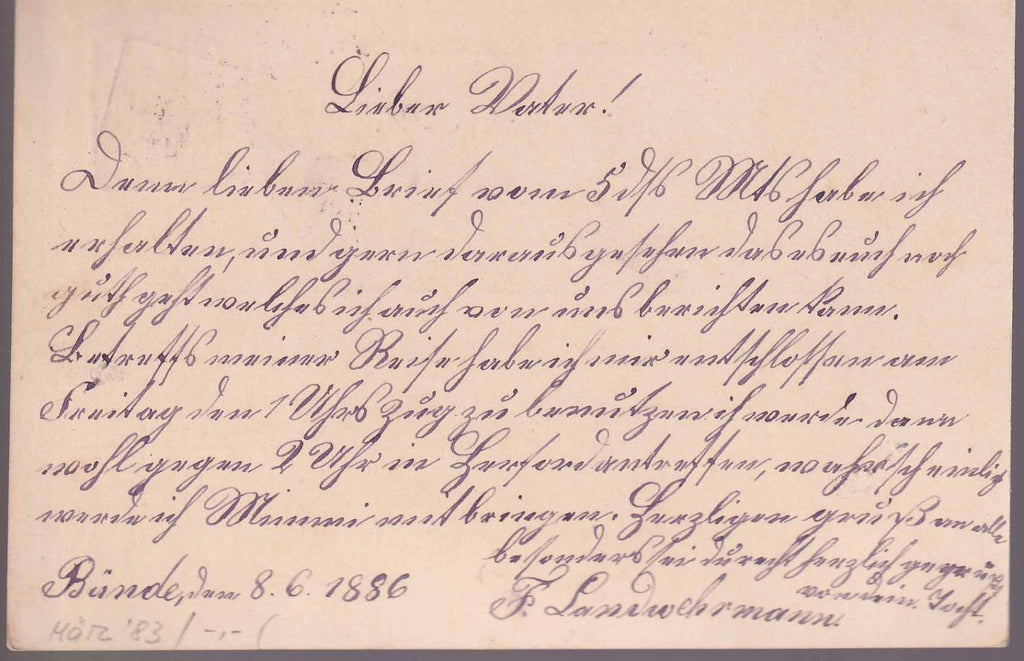 Lieber Vater!
Denn lieben Brief vom 5 d/s Mts habe ich
erhalten, und gern daraus gesehen das es euch noch
guth geht welches ich auch von uns berichten kann.
Betreffs meiner Reise habe ich mir entschlossen am
Freitag den 1 Uhrs Zug zu benutzen ich werde dann
wohl gegen 2 Uhr in Herford antreffen, wahrscheinlig
werde ich Mimmi mitbringen. Herzligen gruß an alle
besonders sei du recht herzlich gegrüßt
von dein. Tocht.
Bünde, den 8. 6. 1886
F. Landwehrmann.
März '83 / -.- (